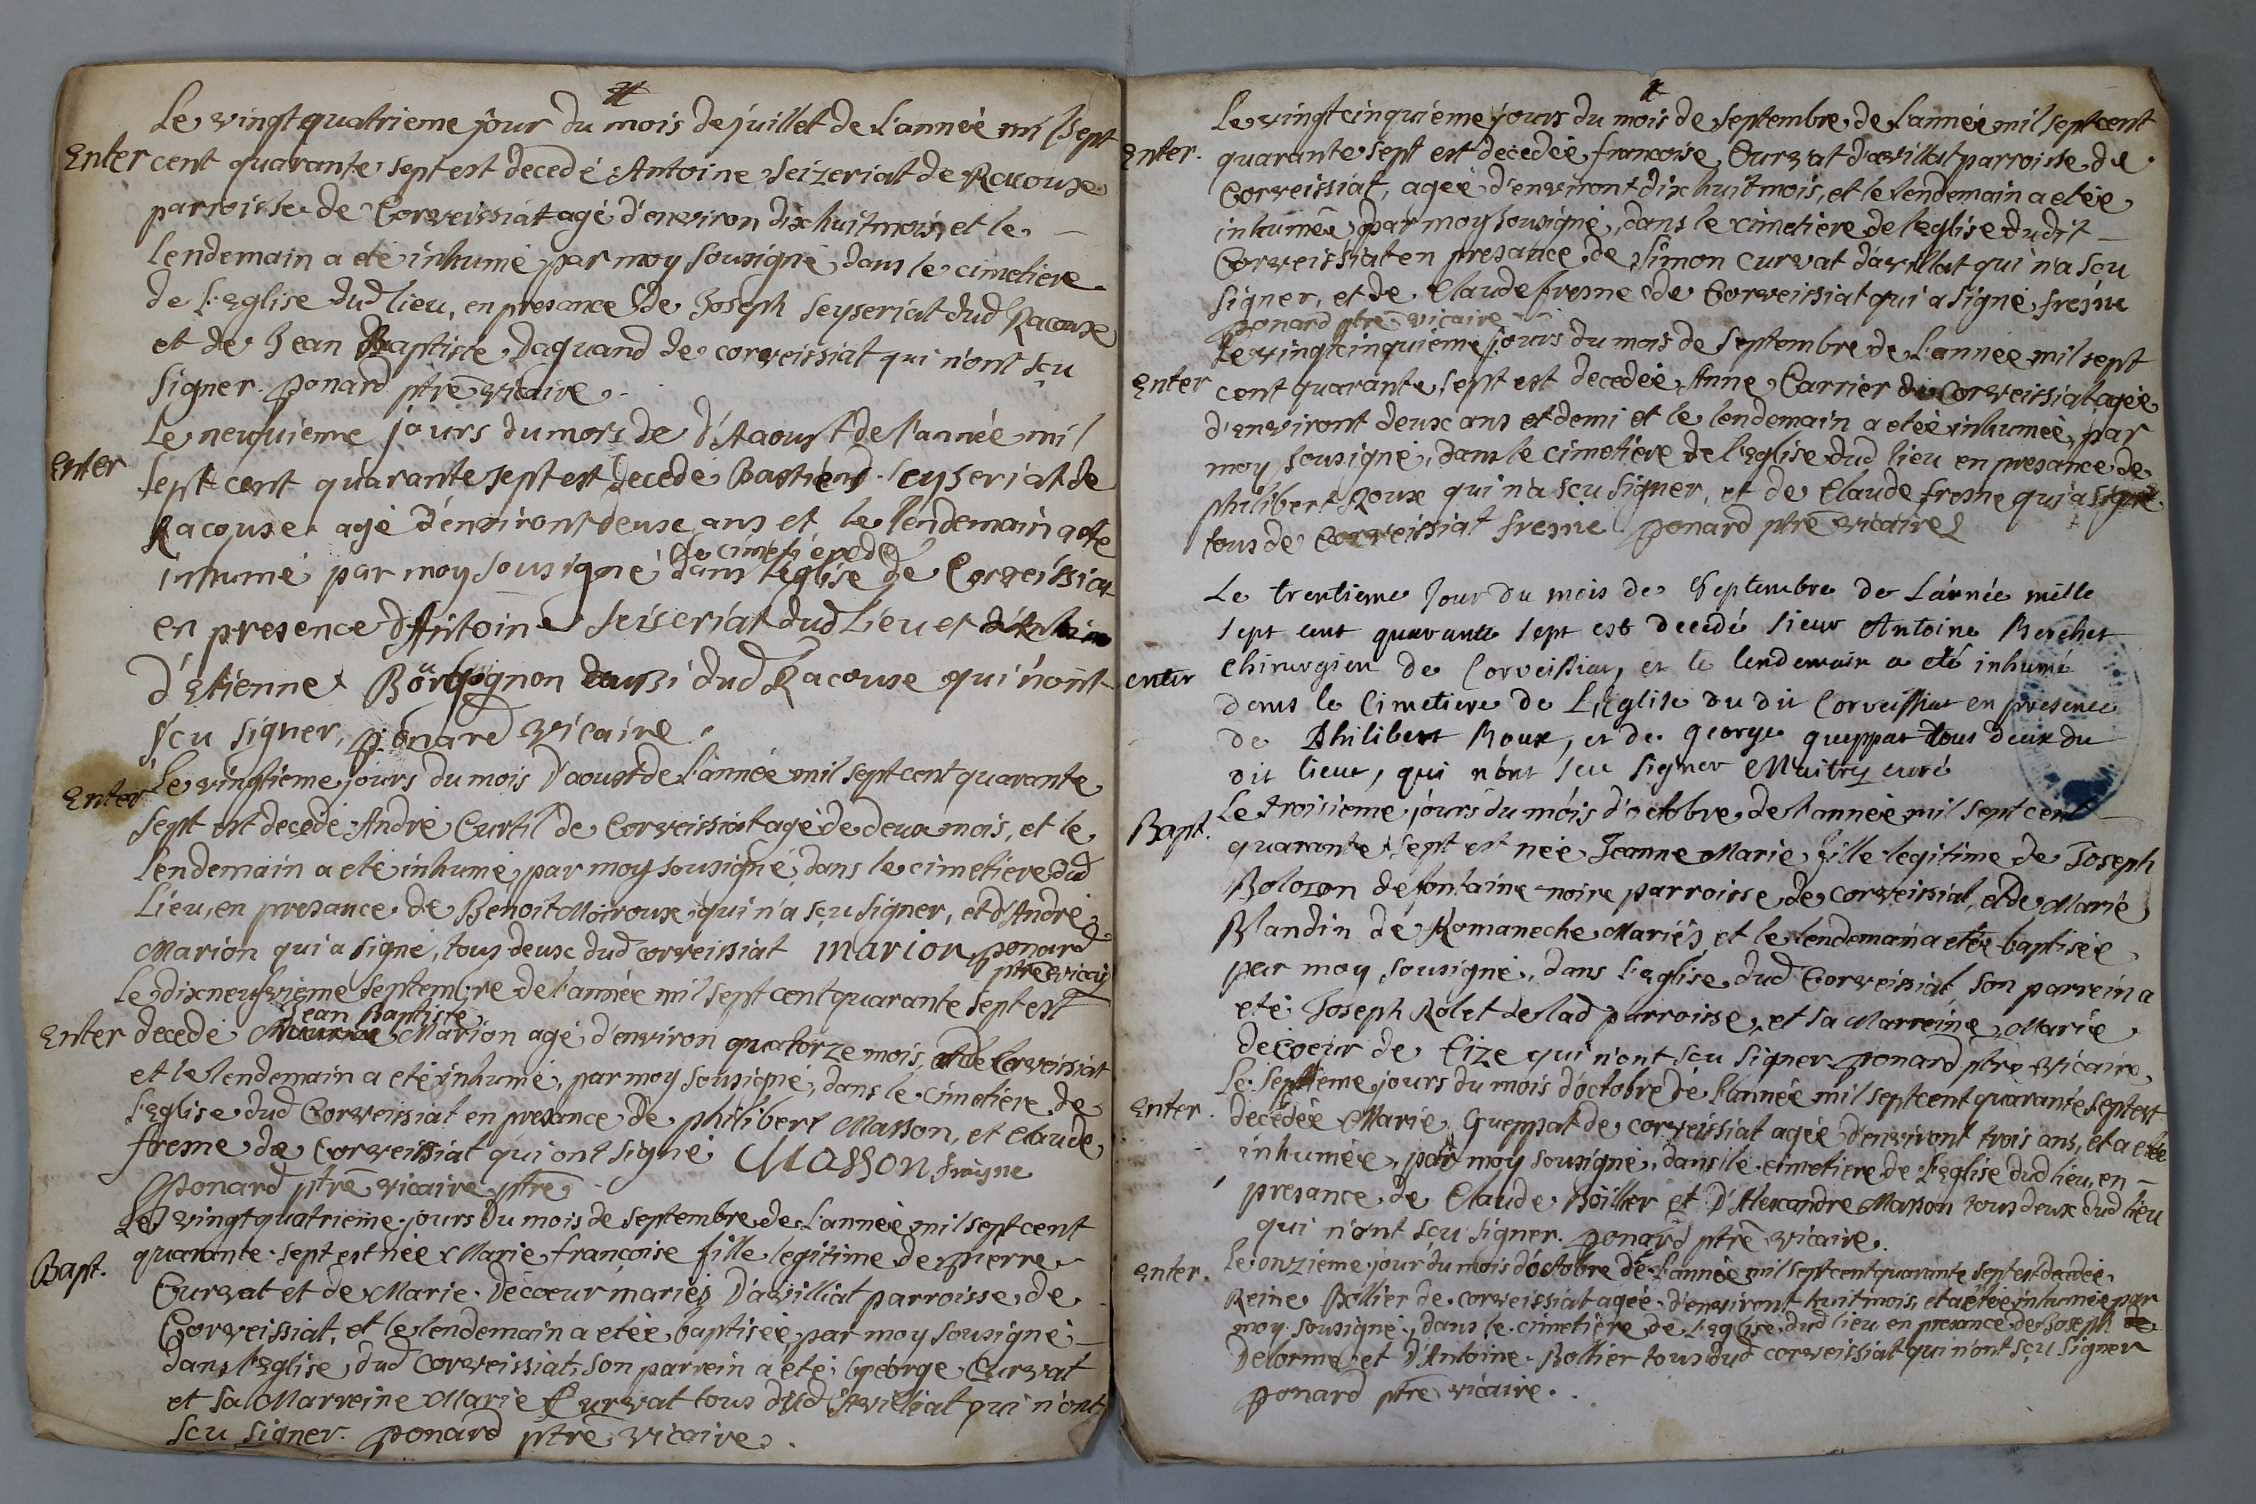 Le vingtquatrieme jour du mois de juillet de l'année mil sept
Enter cent quarante sept est decedé Antoine Seizeriat de Racouse
parroisse de Corveissiat agé d'environ dixhuit mois, et le
lendemain a eté inhumé par moy sousigné dans le cimetiere
de l'Eglise dud lieu, en presance de Joseph Seyseriat dud Racouse
et de Jean Baptiste Daquand de corveissiat qui n'ont sçu
signer. ponard ptre vicaire.
Le neufuieme jours du mois de d'Aaoust de l'année mil
Enter
sept cent quarante sept est decedé Bastiend Seyseriat de
Racouse agé d'environt deux ans et le lendemain a eté
le cimetiere de
inhumé par moy sousigné dans l'eglise de Corveissiat
en presence d'Antoine Seiseriat dud Lieu et
d'Etienne Borbignon aussi dud Racouse qui n'ont
sçu signer, ponard vicaire.
Enter Le vingtieme jours du mois d'aoust de l'année mil sept cent quarante
sept est decedé André Curtil de Corveissiat agé de deux mois, et le
lendemain a eté inhumé, par moy sousigné, dans le cimetiere dud
Lieu, en presance de Benoit Moiroux qui n'a sçu signer, et d'André
Marion qui a signé, tous deux dud corveissiat marion ponard
ptre vicair
Le dixneufvieme septembre de l'année mil sept cent quarante sept est
ean Baptiste
Enter decedé Marion agé d'environ quatorze mois, de Corveissiat
et le lendemain a eté inhumé, par moy sousigné, dans le cimetiere de
l'Eglise dud Corveissiat en presance de philibert Masson, et Claude
fresne de Corveissiat qui ont signé Masson fraigne
ponard ptre vicaire ptre
Le vingtquatrieme jours du mois de septembre de l'année mil sept cent
Bapt. quarante sept est née Marie francoise fille legitime de pierre
Curvat et de Marie Decœur mariés d'avilliat parroisse de
Corveissiat, et le lendemain a eteé baptisée par moy sousigné
dans l'Eglise dud Corveissiat, son parrein a eté George Curvat
et sa Marreine Marie Curvat tous dud Avilliat qui n'ont
scu signer. ponard ptre vicaire.
Le vingtcinquiéme jours du mois de septembre de l'année mil sept cent
Enter. quarante sept est decedée francoise Curvat d'avillat parroisse de
Corveissiat, ageé d'environt dix huit mois, et le lendemain a eteé
inhumée par moy sousigné, dans le cimetiere de l'eglise dudit
Corveissiat en presance de Simon Curvat d'avillat qui n'a scu
signer, et de Claude fresne de Corveissiat qui a signé fresne
ponard ptre vicaire
Le vingtcinquieme jours du mois de septembre de l'année mil sept
Enter cent quarante sept est decedeé Anne Carrier de Corveissiat ageé
d'environt deux ans et demi et le lendemain a eteé inhumeé, par
moy sousigné, dans le cimetiere de l'Eglise dud lieu en presance de
philibert Roux qui n'a scu signer, et de Claude fresne qui a signé
tous de Corveissiat fresne ponard ptre vicaire
Le trentieme Jour du mois de Septembre de L'année mille
sept cent quarante sept est decedé sieur Antoine Berchet
enter chirurgien de Corveissiat, et le lendemain a eté inhumé
dans le Cimetiere de L'Eglise du dit Corveissiat en presence
de Philibert Roux, et de george queppat tous deux du
dit lieux, qui n'ont sceu signer Maitry curé
Le troisieme jours du mois d'octobre de l'anneé mil sept cent
Bapt. quarante sept est neé Jeanne Marie fille legitime de Joseph
Bolozon de fontaine noire parroisse de Corveissiat, et de Marie
Blandin de Romaneche Mariés et le lendemain a eteé baptisée
par moy sousigné, dans l'Eglise dud Corveissiat son parrein a
eté Joseph Rolet de lad parroisse, et sa Marreine Marie
decoeur de Cize qui n'ont scu signer ponard ptre vicaire
Le septieme jours du mois d'octobre de l'année mil sept cent quarante sept est
Enter. decedée Marie Gueppat de corveissiat ageé d'environt trois ans, et a eteé
inhumeé, par moy sousigné, dans le cimetiere de l'Eglise dud lieu, en
presance de Claude Boillier et D'Alexandre Masson tous deux dud lieu
qui n'ont sçu signer. ponard ptre vicaire.
Enter. Le onzieme jour du mois d'octobre de l'année mil sept cent quarante sept est decedée
Reine Bollier de corveissiat ageé d'environt huit mois, et a eteé inhumeé par
moy sousigné, dans le cimetiere de l'Eglise dud lieu en presance de Joseph
Delorme et d'Antoine Bollier tous dud corveissiat qui n'ont sçu signer
ponard ptre vicaire.